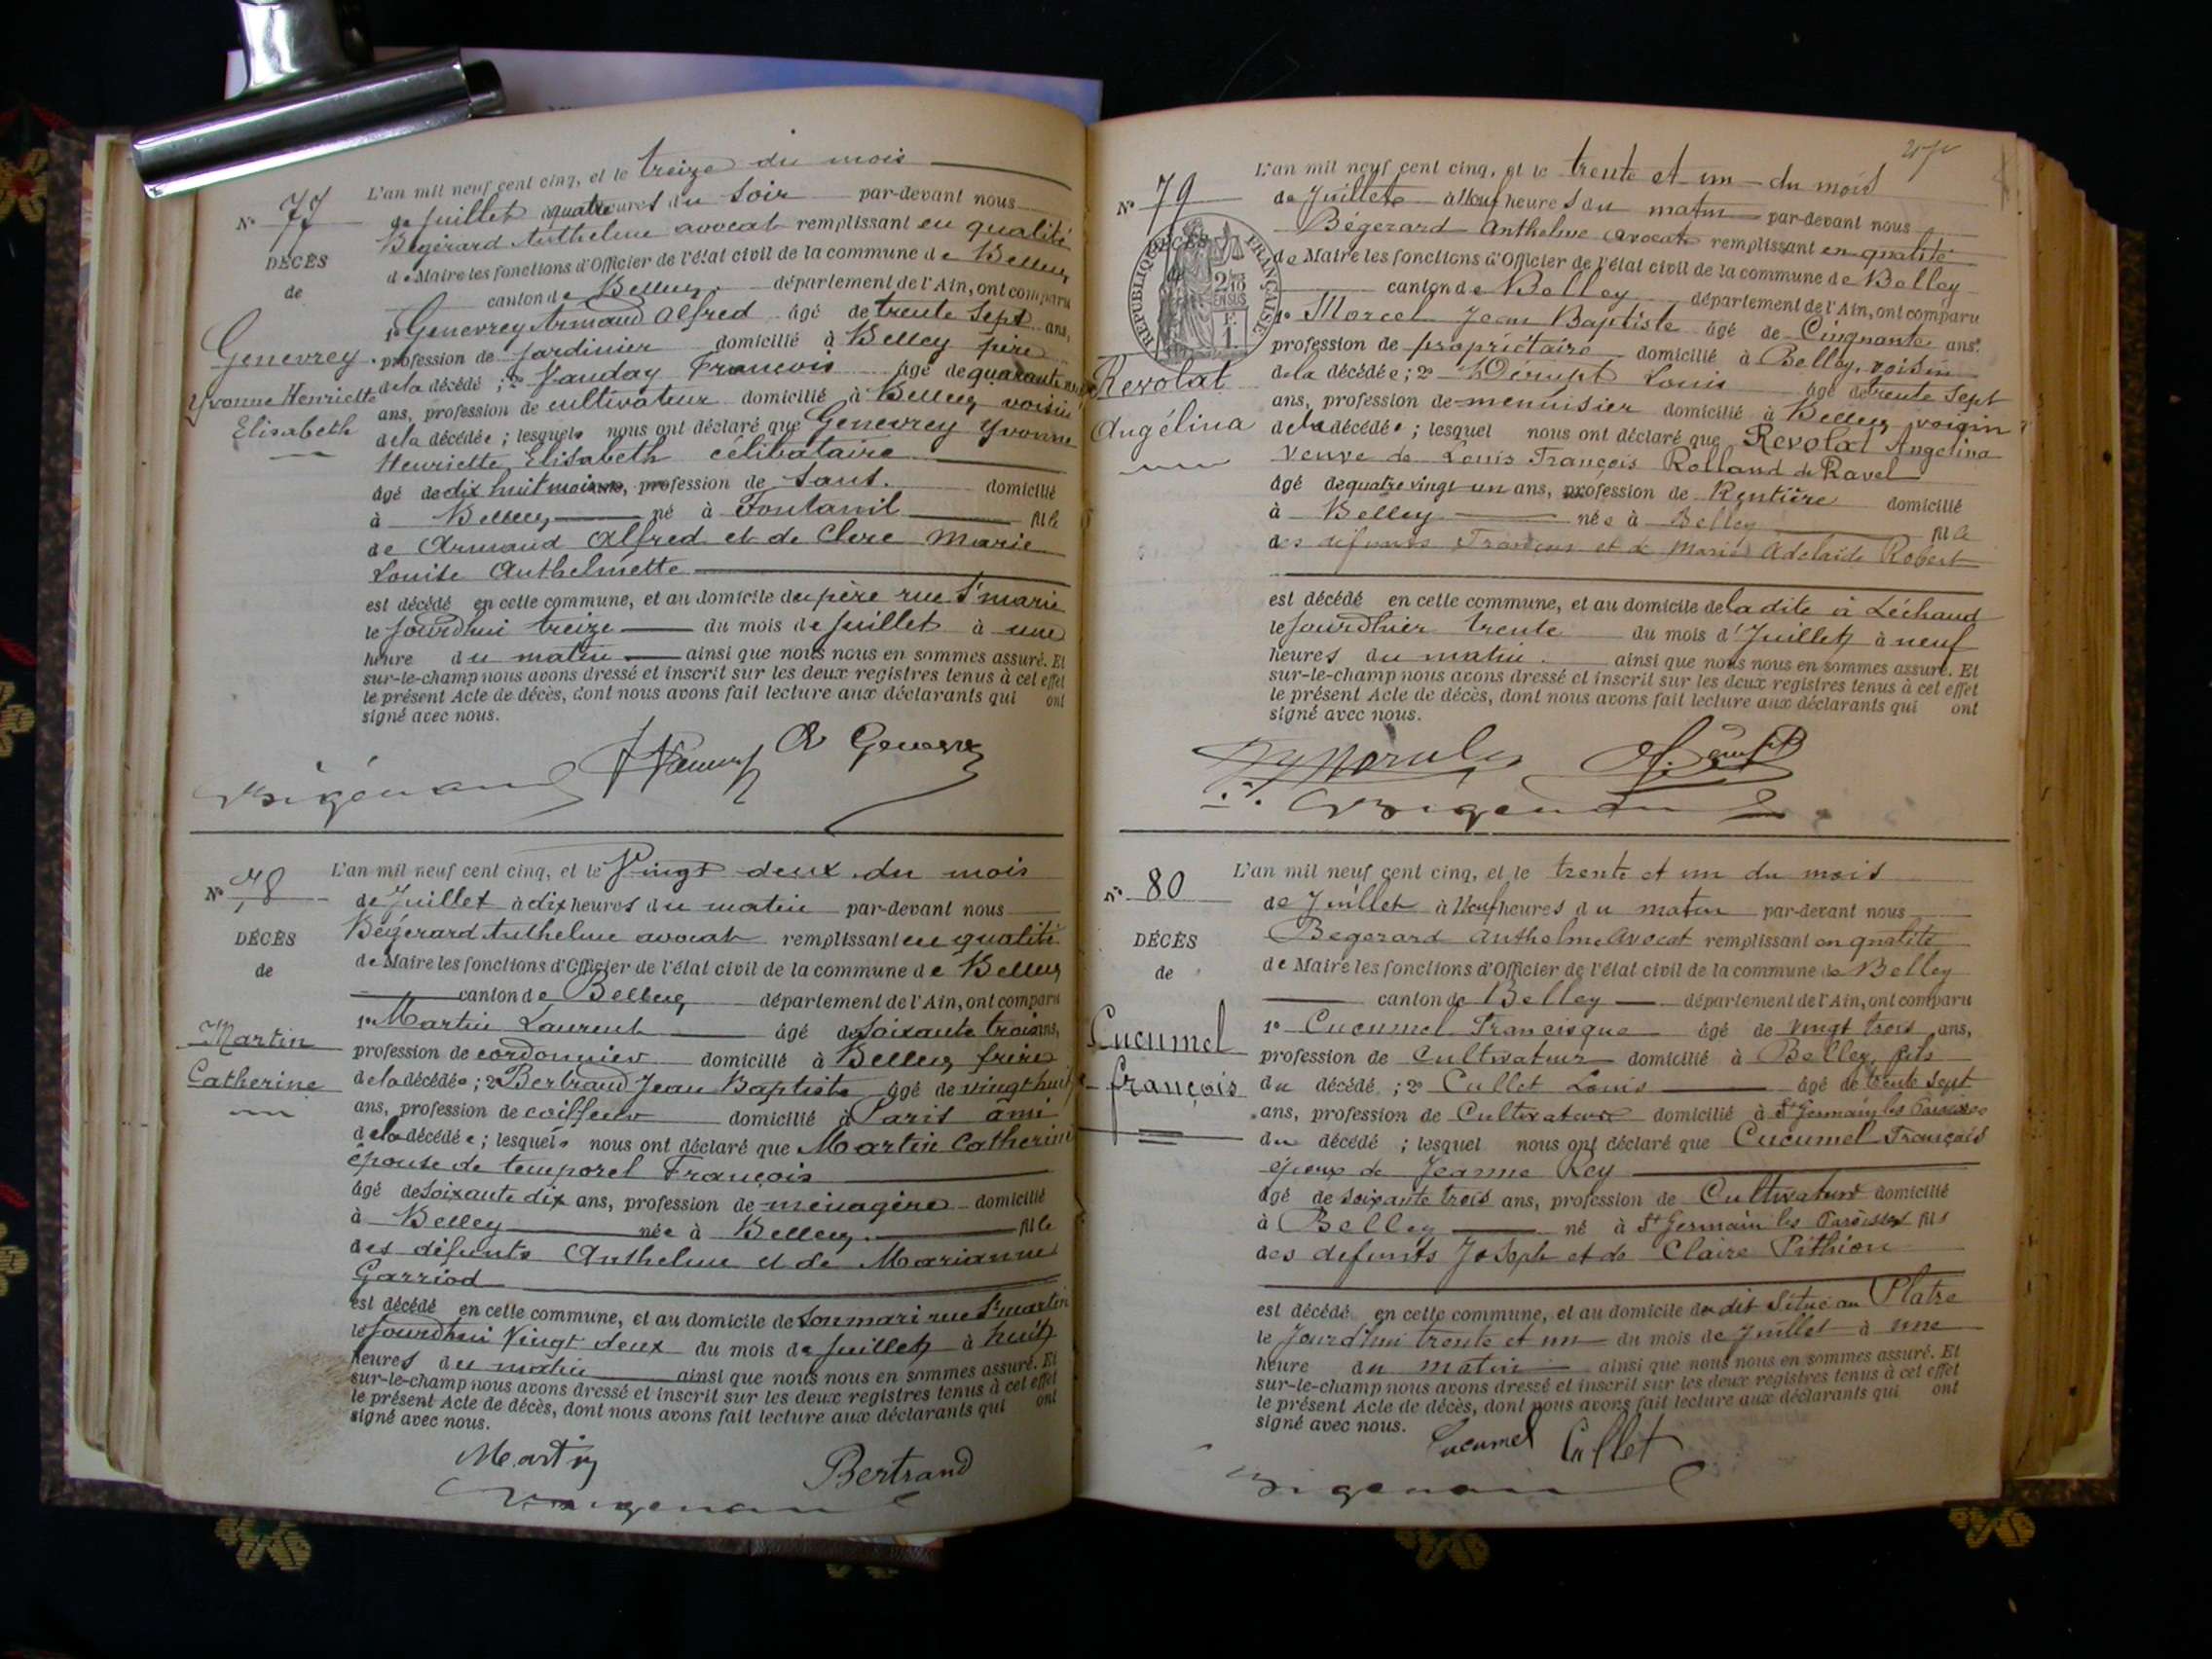 L'an mil neuf cent cinq, et le treize du mois
N° 77
de Juillet à quatre heures du soir par-devant nous
Bégérard Anthelme avocat remplissant en qualité
DÉCÈS
de Maire les fonctions d'Officier de l'état civil de la commune de Belley
de
canton de Belley département de l'Ain, ont comparu
1° Genevrey Armand Alfred âgé de trente sept ans,
Genevrey
profession de jardinier domicilié à Belley père
de la décédé ; 2° Vauday Francois âgé de quarante
Yvonne Henriette
ans, profession de cultivateur domicilié à Belley voisin
Elisabeth
de la décédée ; lesquels nous ont déclaré que Genevrey Yvonne
Henriette Elisabeth célibataire
âgé de dix huit mois ans, profession de sans. domicilié
à Belley né à Fontanil fille
de Armand Alfred et de Clerc Marie
Louise Anthelmette
est décédé en cette commune, et au domicile du père rue St marie
le jourdhui treize du mois de juillet à une
heure du matin ainsi que nous nous en sommes assuré. Et
sur-le-champ nous avons dressé et inscrit sur les deux registres tenus à cet effet
le présent Acte de décès, dont nous avons fait lecture aux déclarants qui ont
signé avec nous.
L'an mil neuf cent cinq, et le Vingt deux du mois
N° 78
de Juillet à dix heures du matin par-devant nous
Bégérard Anthelme avocat remplissant en qualité
DÉCÈS
de Maire les fonctions d'Officier de l'état civil de la commune de Belley
de
canton de Belley département de l'Ain, ont comparu
1° Martin Laurent âgé de soixante trois ans,
Martin
profession de cordonnier domicilié à Belley frère
Catherine
de la décédée ; 2° Bertrand Jean Baptiste âgé de vingt huit
ans, profession de coiffeur domicilié à Paris ami
de la décédée ; lesquels nous ont déclaré que Martin Catherine
épouse de temporel François
âgé de soixante dix ans, profession de ménagère domicilié
à Belley née à Belley fille
des défunts Anthelme et de Marianne
Garriod
est décédé en cette commune, et au domicile de son mari rue St martin
le jourdhui Vingt deux du mois de juillet à huit
heures du matin ainsi que nous nous en sommes assuré. Et
sur-le-champ nous avons dressé et inscrit sur les deux registres tenus à cet effet
le présent Acte de décès, dont nous avons fait lecture aux déclarants qui ont
signé avec nous.
Martin Bertrand
L'an mil neuf cent cinq, et le trente et un du mois
N° 79
de Juillet à Neuf heures du matin par-devant nous
Bégerard Anthelme avocat remplissant en qualité
de Maire les fonctions d'Officier de l'état civil de la commune de Belley
RÉPUBLIQUE FRANÇAISE
canton de Belley département de l'Ain, ont comparu
1° Morcel Jean Baptiste âgé de Cinquante ans,
profession de propriétaire domicilié à Belley, voisin
Revolat
de la décédée ; 2° Louis âgé de trente sept
ans, profession de menuisier domicilié à Belley voisin
Angélina
de la décédée ; lesquel nous ont déclaré que Revolat Angelina
Veuve de Louis François Rolland de Ravel
âgé de quatre vingt un ans, profession de Rentière domicilié
à Belley née à Belley fille
des défunts François et de Marie Adelaide Robert
est décédé en cette commune, et au domicile de la dite à Léchaud
le jourdhier trente du mois d' Juillet à neuf
heures du matin. ainsi que nous nous en sommes assuré. Et
sur-le-champ nous avons dressé et inscrit sur les deux registres tenus à cet effet
le présent Acte de décès, dont nous avons fait lecture aux déclarants qui ont
signé avec nous.
L'an mil neuf cent cinq, et le trente et un du mois
N° 80
de Juillet à Neuf heures du matin par-devant nous
Bégerard Anthelme Avocat remplissant en qualité
DÉCÈS
de Maire les fonctions d'Officier de l'état civil de la commune de Belley
de
canton de Belley département de l'Ain, ont comparu
1° Cucumel Francisque âgé de vingt trois ans,
Cucumel
profession de Cultivateur domicilié à Belley, fils
françois
du décédé ; 2° Cullet Louis âgé de trente sept
ans, profession de Cultivateur domicilié à St Germain les Paroisses
du décédé ; lesquel nous ont déclaré que Cucumel François
époux de Jeanne Rey
âgé de soixante trois ans, profession de Cultivateur domicilié
à Belley né à St Germain les Paroisses fils
des defunts Joseph et de Claire Pithion
est décédé en cette commune, et au domicile du dit Situé au Platre
le Jourd'hui trente et un du mois de Juillet à une
heure du matin ainsi que nous nous en sommes assuré. Et
sur-le-champ nous avons dressé et inscrit sur les deux registres tenus à cet effet
le présent Acte de décès, dont nous avons fait lecture aux déclarants qui ont
signé avec nous.
Cucumel Cullet